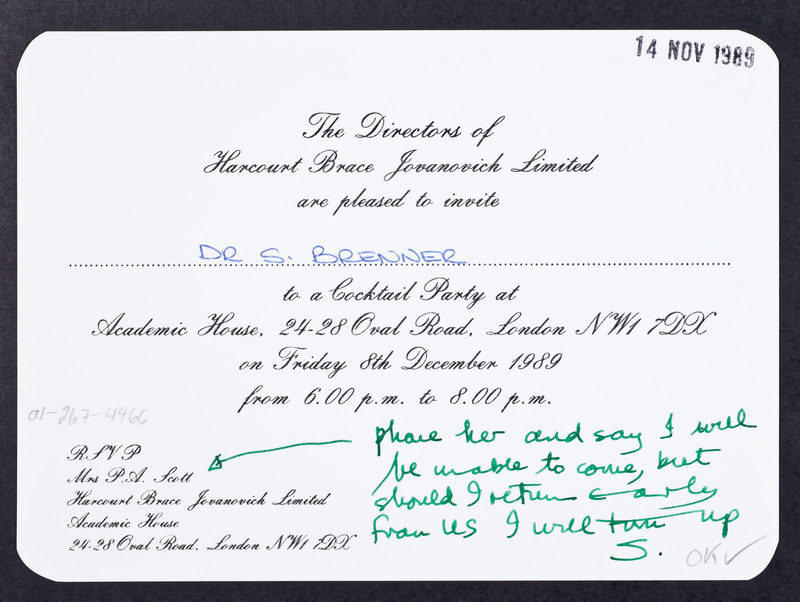 14 NOV 1989
The Directors of
Harcourt Brace Jovanovich Limited
are pleased to invite
DR S. BRENNER
to a Cocktail Party at
Academic House, 24-28 Oval Road, London NW1 7DX
on Friday 8th December 1989
from 6.00 p.m. to 8.00 p.m.
01-267-4466
RSVP
Mrs P.A. Scott
Harcourt Brace Jovanovich Limited
Academic House
24-28 Oval Road, London NW1 7DX
phone her and say I will
be unable to come, but
should I return early
from US I will turn up
S.
OK✓